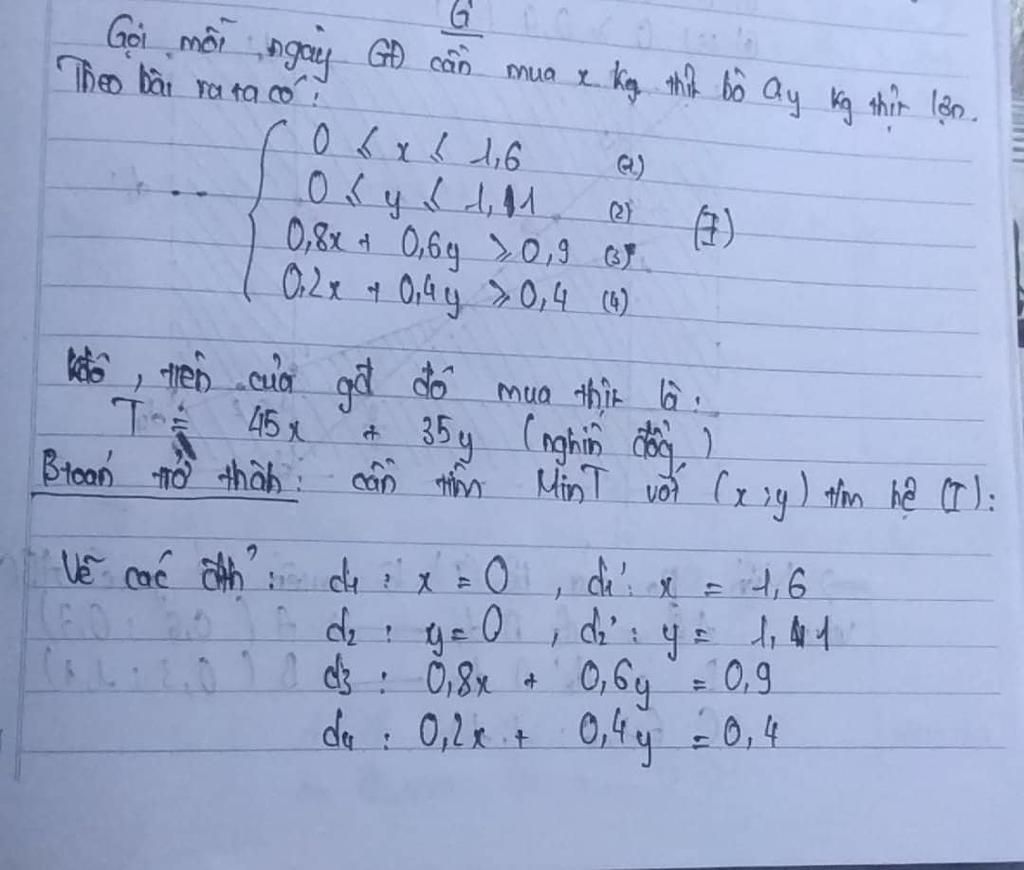 G
Gọi mỗi ngày GĐ cần mua x kg thịt bò ay kg thịt lợn.
Theo bài ra ta có:
0 ≤ x ≤ 1,6 (1)
0 ≤ y ≤ 1,1 (2) (I)
0,8x + 0,6y ≥ 0,9 (3)
0,2x + 0,4y ≥ 0,4 (4)
Kđó, tiền của gđ đó mua thịt là:
T = 45x + 35y (nghìn đồg)
Btoán trở thàh: cần tìm MinT với (x;y) t/m hệ (I):
Vẽ các đth²: d1 : x = 0, d1': x = 1,6
d2 : y = 0, d2' : y = 1,1
d3 : 0,8x + 0,6y = 0,9
d4 : 0,2x + 0,4y = 0,4